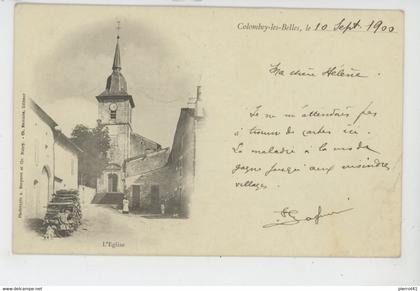 Colombey-les-Belles, le 10 Sept 1900
Ma chère Hélène
Je ne m'attendais pas
à trouver de cartes ici.
La maladie à la vote
gagne jusqu'aux moindres
villages.
Phototypie A. Bergeret et Cie Nancy. Editeur
L'Eglise
www.pierrot41.com